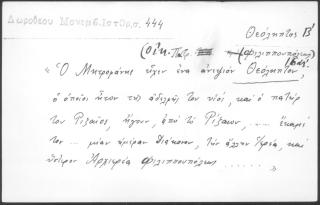 Δωροθεου Μονεμβ. Ιστορ, σ. 444
Θεόληπτος Β'
(Οἰκ. Πατρ. (Φιλιππουπόλεως)
« Ὁ Μητροφάνης εἶχεν ἕνα ἀνεψιόν Θεόληπτον,
ὁ ὁποῖος ἦτον τῆς ἀδελφῆς του υἱός, καὶ ὁ πατήρ
του Ριζαῖος, ἤγουν, ἀπό τό Ρίζαιον, .... ἔκαμέ
τον ... μίαν ἡμέραν διάκονον, τήν ἄλλην Ἱερέα, καί
ὕστερον Ἀρχιερέα Φιλιππουπόλεως ...... »